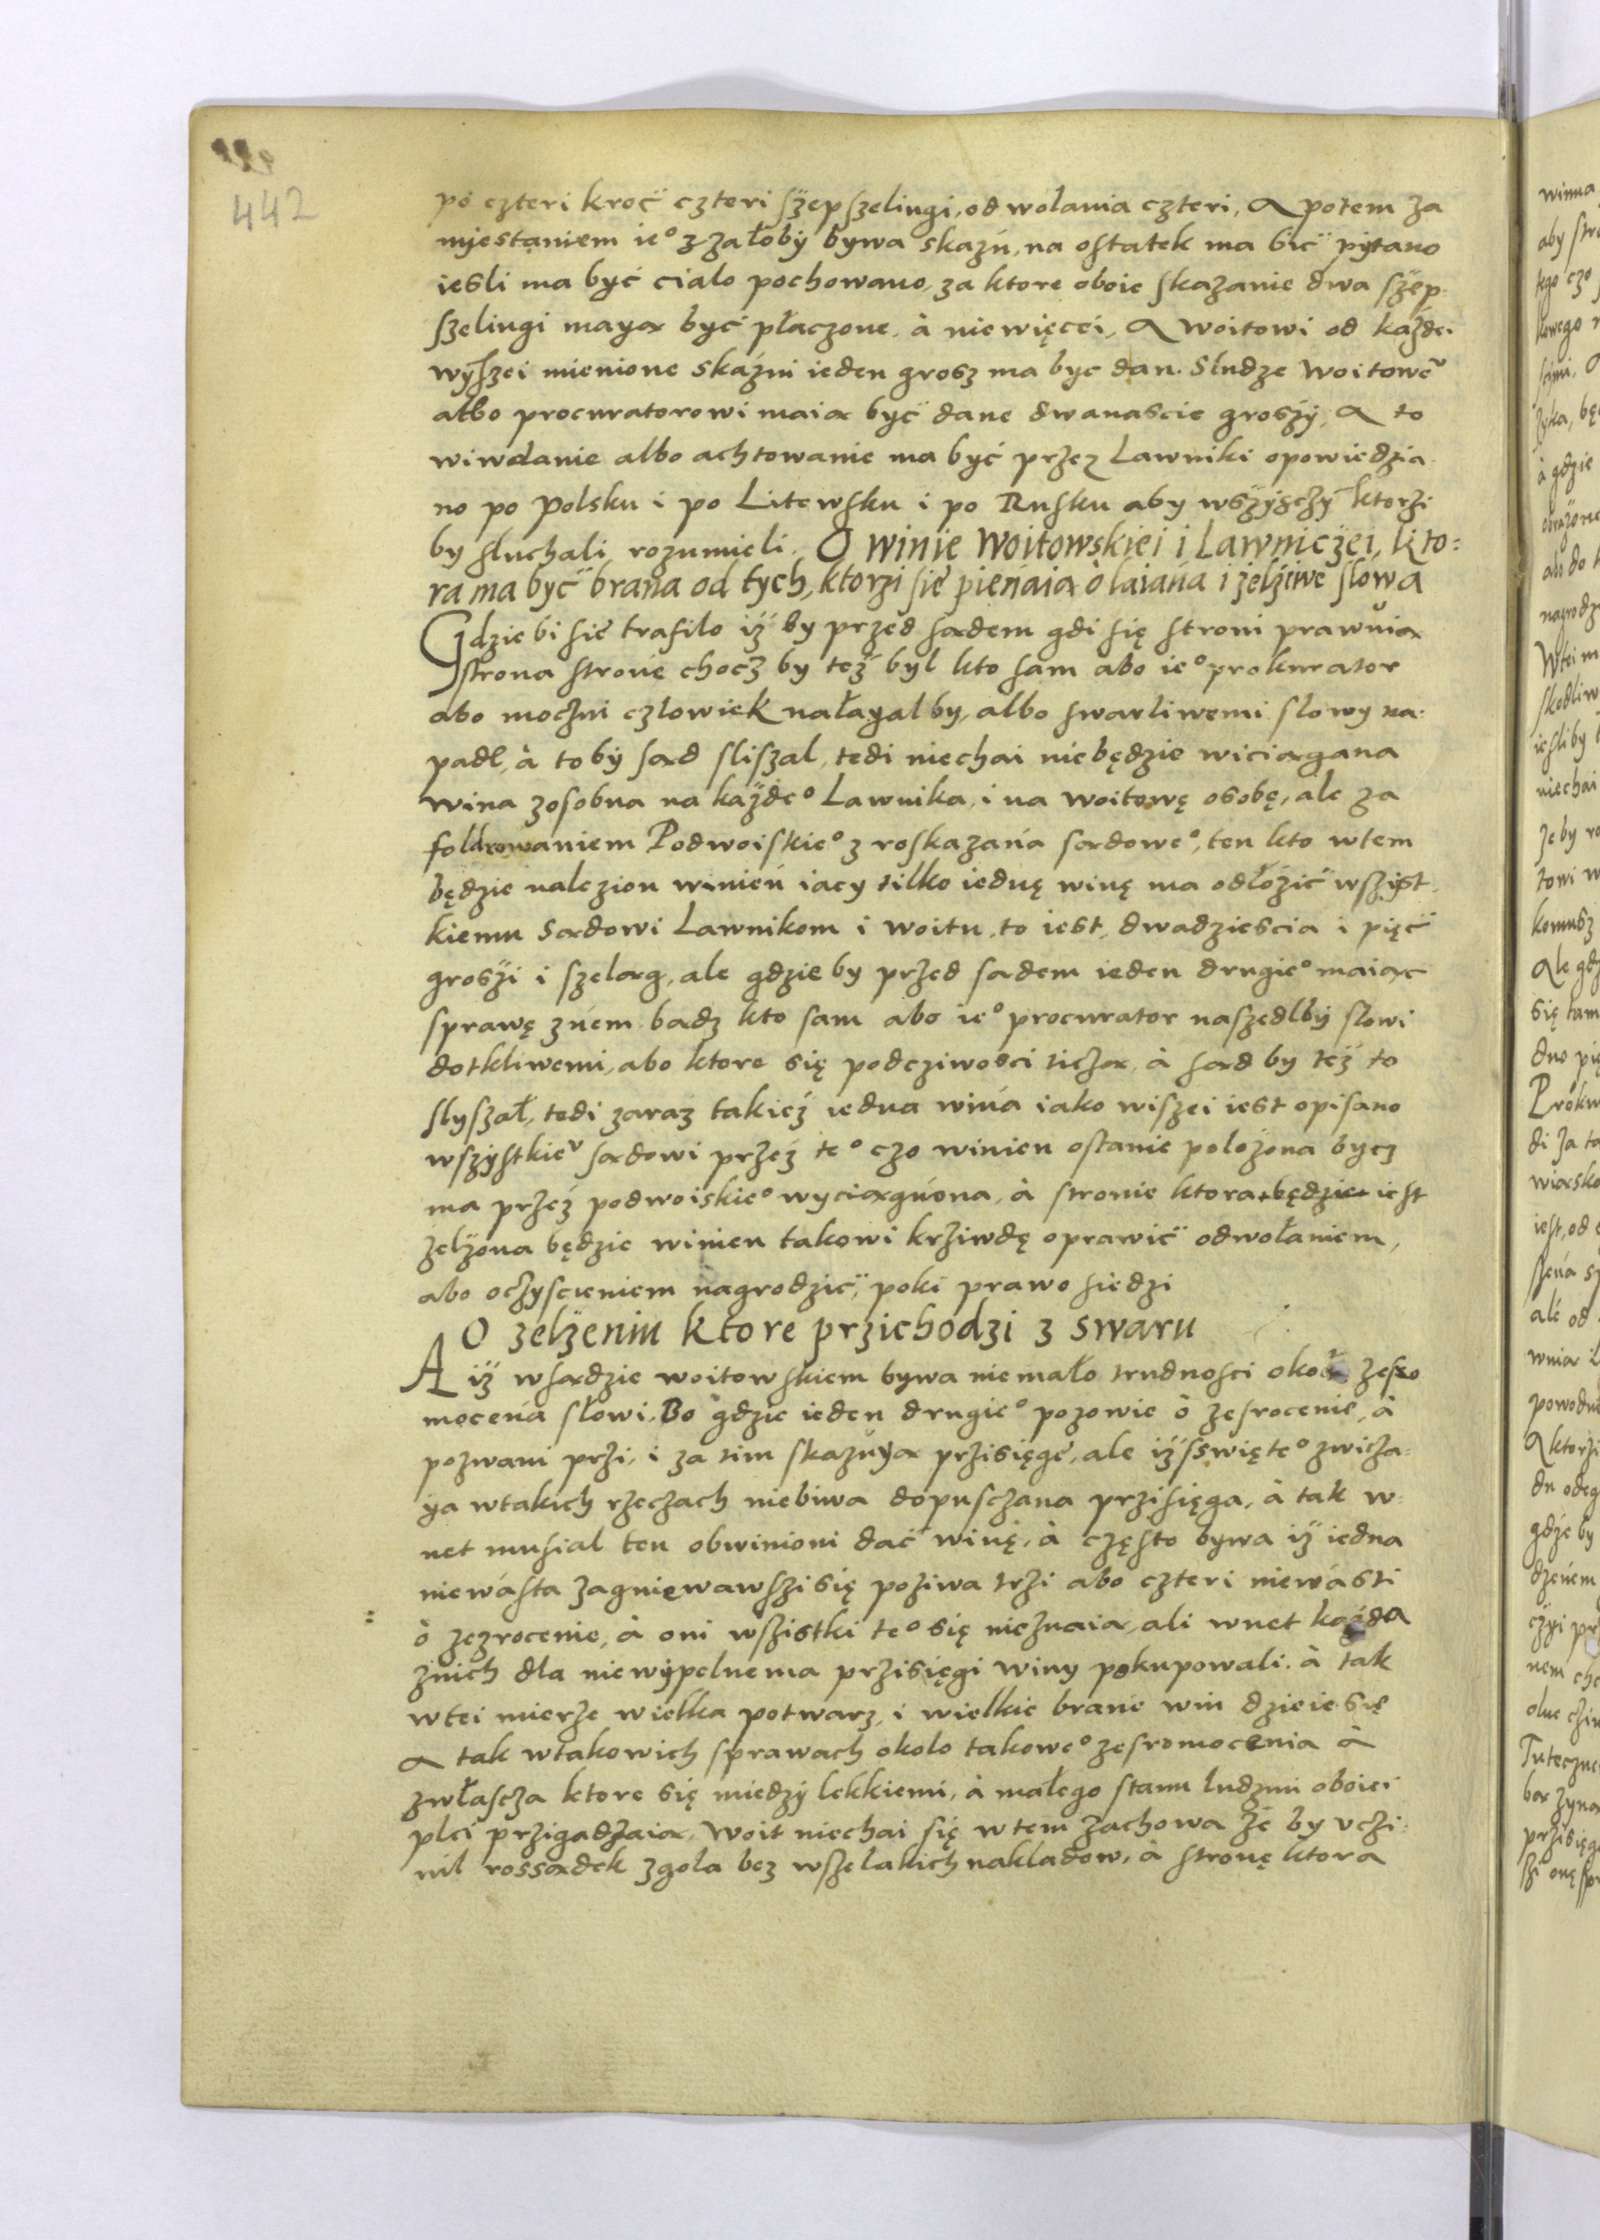 442
po czteri kroć czteri szepszelingi, od wolania czteri, A potem za
miestaniem ie° z załoby bywa skazń, na ostatek ma bić pytano
iesli ma być cialo pochowano, za ktore oboie skazanie dwa szep
szelingi mayą być płaczone, à niewięcei, A woitowi od każdei
wyszei mienione skaźni ieden grosz ma byc dan. Słudze woitowe°
albo procuratorowi maią być dane dwanascie groszy, A to
wiwdanie albo achtowanie ma być przez Lawniki opowiedzia
no po Polsku i po Litewsku i po Rusku aby wszysczy ktorzi
by sluchali rozumieli. O winie Woitowskiei i Lawniczei, kto:
ra ma być brana od tych, ktorzi sie pieńaią ò laiańa i zelżiwe slowa
Gdzie bi sie trafilo iż by przed sądem gdi się stroni prawuią
strona strone chocz by też byl kto sam abo ie° prokurator
abo moczni czlowiek nałayal by, albo swarliwemi slowy na:
padl, à toby sąd sliszal, tedi niechai niebędzie wiciągana
wina zosobna na każde° Lawnika, i na woitowę osobę, ale za
foldrowaniem Podwoiskie° z roskazańa sądowe°, ten kto wtem
będzie nalezion winień iacy tilko iednę winę ma odłożić wszist
kiemu sądowi Lawnikom i woitu, to iest, dwadziescia i pięć
groszi i szeląg, ale gdzie by przed sądem ieden drugie° maiąc
sprawę zńem badz kto sam abo ie° procurator naszedlby slowi
dotkliwemi, abo ktore się podcziwosci ticżą, à sąd by też to
slyszał, tedi zaraz takież iedna wińa iako wiszei iest opisano
wszystkie° sądowi przez te° czo winien ostanie polożona bycz
ma przez podwoiskie° wyciągńona, à stronie ktora będzie iest
zelżona będzie winien takowi krziwdę oprawić odwołaniem,
abo oczyscieniem nagrodzić, poki prawo siedzi
O zelżeniu ktore przichodzi z swaru
A iż wsądzie woitowskiem bywa niemało trudnosci okoł zesro
moceńa słowi. Bo gdzie ieden drugie° pozowie ò zesrocenie, à
pozwani przi, i za tim skazuyą przisięgę, ale iż sswięte° zwicza
ya wtakich rzeczach niebiwa dopusczana przisięga, à tak w
net musial ten obwinioni dać winę, à często bywa iż iedna
niewásta zagniewawszi się poziwa trzi abo czteri niewásti
ò zezrocenie, à oni wszistki te° się nieznaią, ali wnet każda
znich dla niewypelnema przisięgi winy pokupowali. à tak
wtei mierze wielka potwarz, i wielkie brane win dzieie się
A tak wtakowich sprawach okolo takowe° zesromocenia à
zwłascza ktore się miedzy lekkiemi, à małego stanu ludzmi oboiei
plci przigadzaią, Woit niechai się wtem zachowa że by vczi:
nil rossądek zgola bez wszelakich nakladow, à stronę ktora